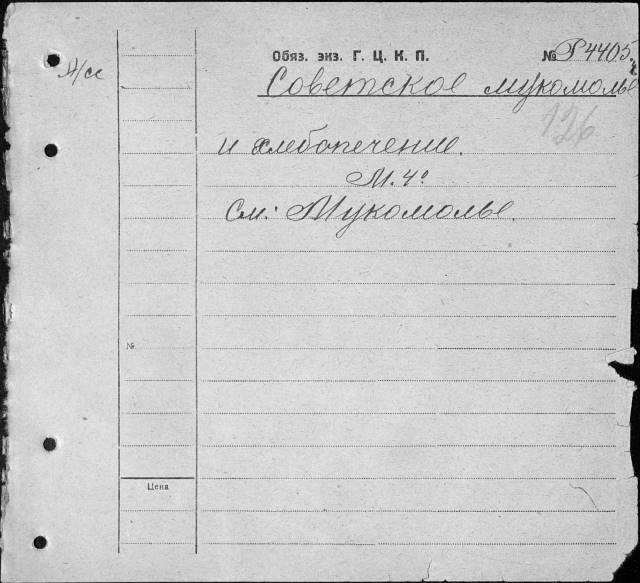 Обяз. экз. Г. Ц. К. П. № Р4405
Советское мукомолье
126
и хлебопечение.
М. 4°
См: Мукомолье.
№
Цена